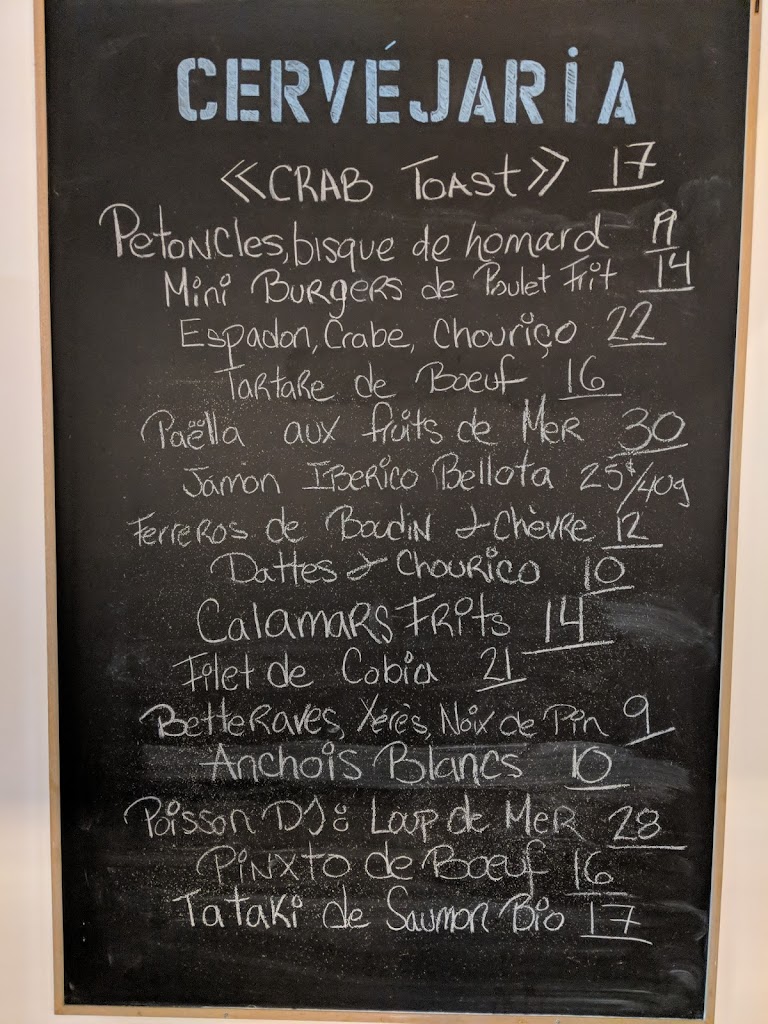 CERVÉJARIA
«CRAB TOAST» 17
Petoncles, bisque de homard
Mini Burgers de Poulet Frit 14
Espadon, Crabe, Chouriço 22
Tartare de Boeuf 16
Paëlla aux fruits de Mer 30
Jamon IBERICO Bellota 25$/40g
Ferreros de Boudin & Chèvre 12
Dattes & Chourico 10
Calamars Frits 14
Filet de Cobia 21
Betteraves, Xérès, Noix de Pin 9
Anchois Blancs 10
Poisson DJ: Loup de Mer 28
Pinxto de Boeuf 16
Tataki de Saumon Bio 17